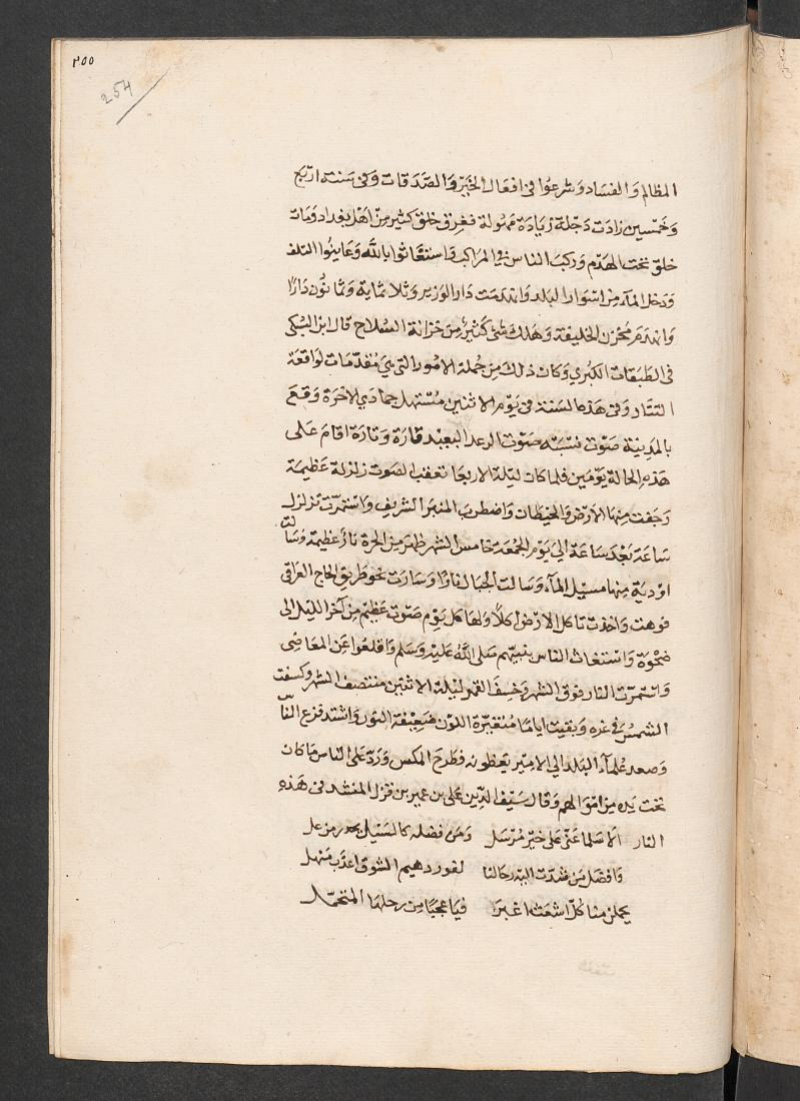 ٢٥٥
254
المظالم والفساد وشرعوا في افعال الخير والصدقات وفي سنة اربع
وخمسين زادت دجلة زيادة مهولة فغرق خلق كثير من اهل بغداد ومات
خلق تحت الهدم وركب الناس في المراكب واستغاثوا بالله وعاينوا التلف
ودخل الماء من اسوار البلد وانهدمت دار الوزير وثلاثماية وثمانون دارا
وانهدم مخزن الخليفة وهلك شئ كثير من خزانة السلاح قال ابن السبكي
في الطبقات الكبرى وكان ذلك من جملة الامور التي هي مقدمات لواقعة
التتار وفي هذه السنة في يوم الاثنين مستهل جمادي الاخرة وقع
بالمدينة صوت نسبته صوت الرعد البعيد تارة وتارة اقام على
هذه الحالة يومين فلما كان ليلة الاربعا تعقب الصوت زلزلة عظيمة
رجفت منها الارض والحيطان واضطرب المنبر الشريف واستمرت تزلزل
ساعة بعد ساعة الي يوم الجمعة خامس الشهر ظهر من الحرة نار عظيمة وسالت
اودية منها مسيل الماء وسالت الجبال نارا وسارت نحو طريق الحاج العراقي
فوقفت واخذت تاكل الارض اكلا ولها كل يوم صوت عظيم من آخر الليل الى
ضحوة واستغاث الناس بنبيهم صلى الله عليه وسلم واقلعوا عن المعاصي
واستمرت النار فوق الشهر وخسف القمر ليلة الاثنين منتصف الشهر وكسفت
الشمس في غده وبقيت اياما متغيرة اللون ضعيفة النور واشتد فزع الناس
وصعد علماء البلد الي الامير يعظونه فطرح المكس ورد على الناس ما كان
تحت يده من اموالهم وقال سيف الدين علي بن عمر بن قزل المشد في هذه
النار الا سلما عني على خير مرسل ومن فضله كالسيل من عل
وافضل من شدت اليه رحالنا الشوق اعذب منهل
يحملن منا كل اشعث اغبرا فيا عجبا من رحلها المتحمل